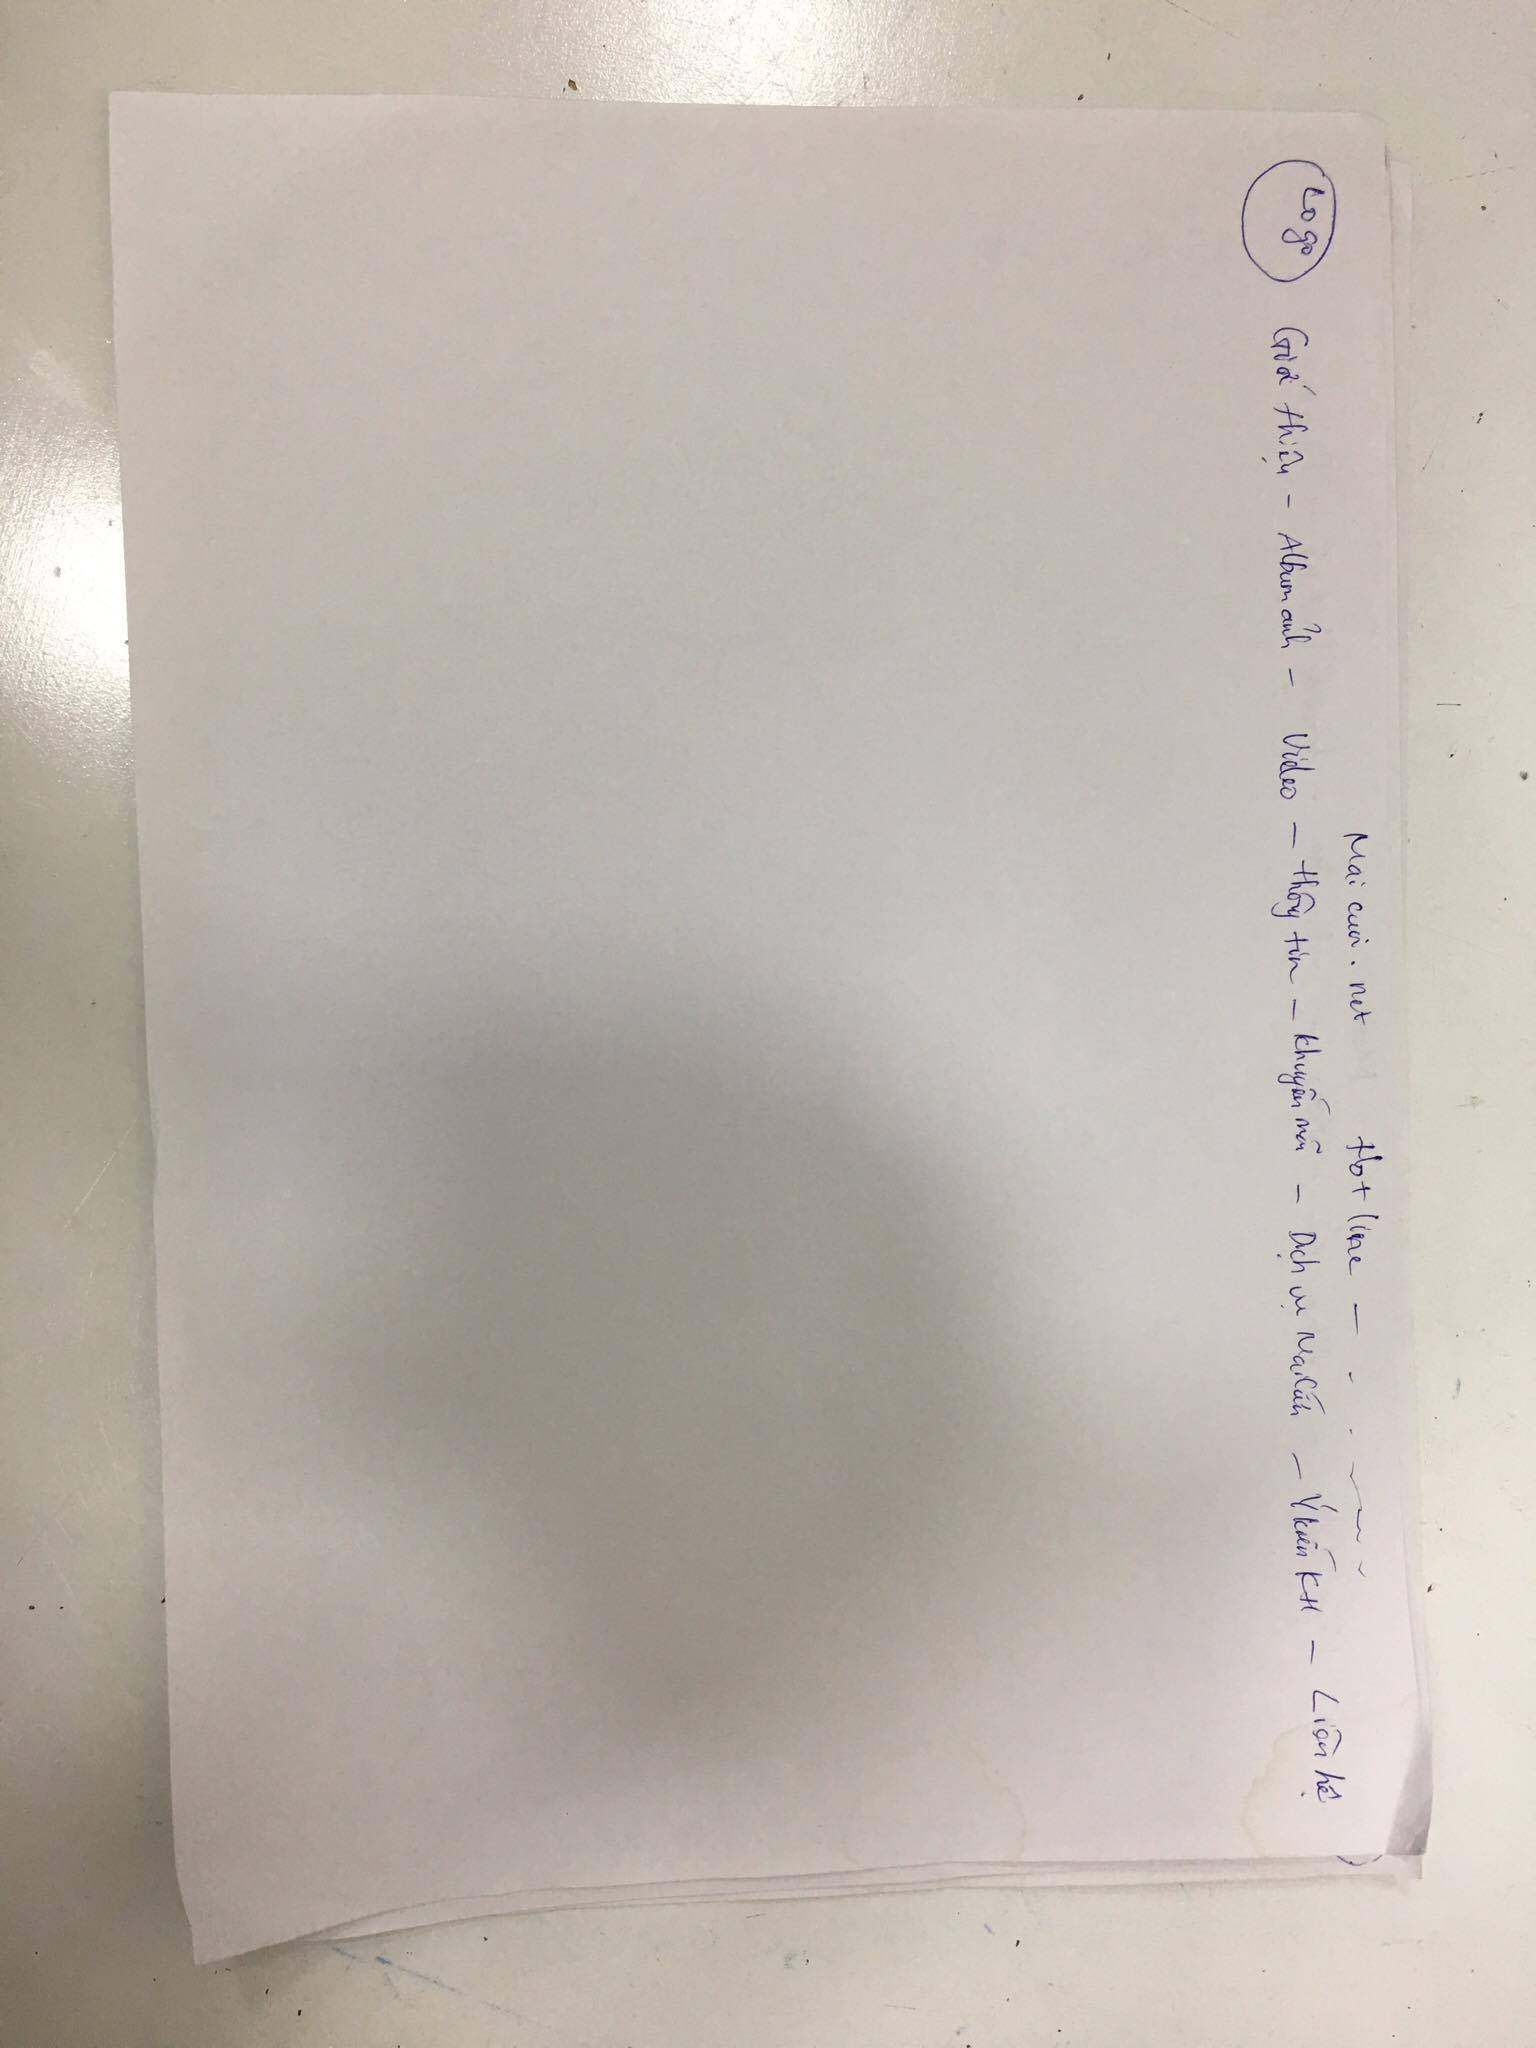 Mai cưới.net Hotline - . .
Logo
Giới thiệu - Album ảnh - Video - thông tin - khuyến mãi - Dịch vụ Mai Cưới - Ý kiến KH - Liên hệ